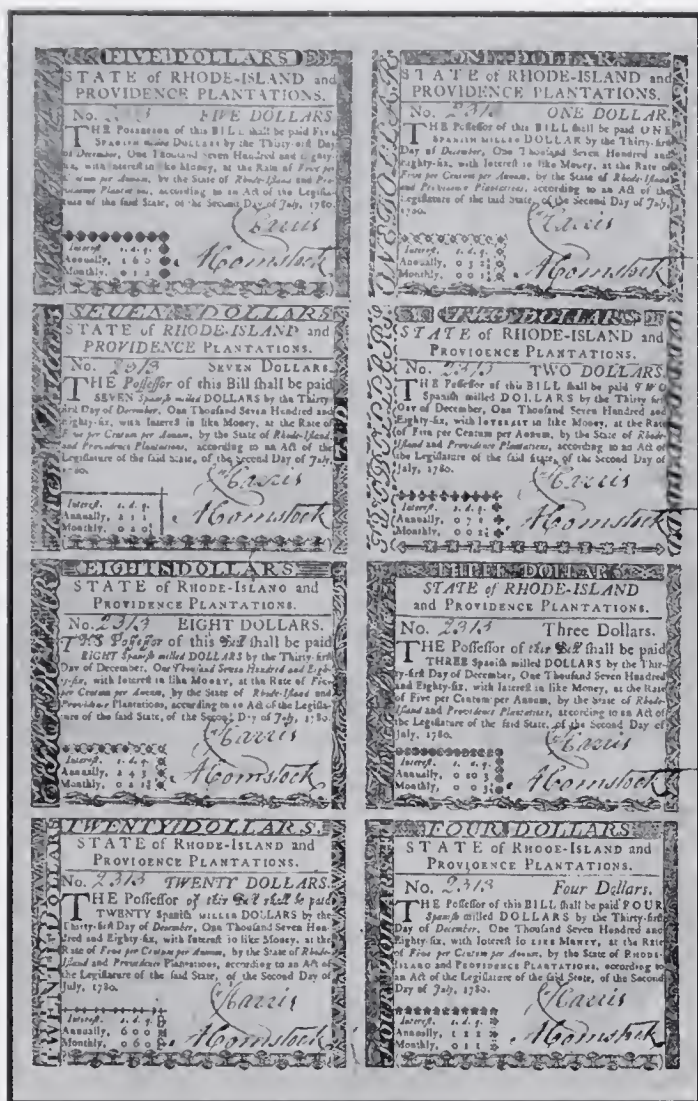 FIVE DOLLARS
STATE of RHODE-ISLAND and
PROVIDENCE PLANTATIONS.
No. FIVE DOLLARS
THE Possessor of this BILL shall be paid FIVE
SPANISH milled DOLLARS by the Thirty-first Day
of December, One Thousand Seven Hundred and Eighty-
six, with Interest in like Money, at the Rate of Five per
Centum per Annum, by the State of Rhode-Island and Pro-
vidence Plantations, according to an Act of the Legisla-
ture of the said State, of the Second Day of July, 1780.
Harris
Interest. s. d. q.
Annually, 1 6 0
Monthly, 0 1 2
A Comstock
ONE DOLLAR
ONE DOLLAR
STATE of RHODE-ISLAND and
PROVIDENCE PLANTATIONS.
No. 2313 ONE DOLLAR.
THE Possessor of this BILL shall be paid ONE
SPANISH MILLED DOLLAR by the Thirty-first
Day of December, One Thousand Seven Hundred and
Eighty-six, with Interest in like Money, at the Rate of
Five per Centum per Annum, by the State of Rhode-Island
and Providence Plantations, according to an Act of the
Legislature of the said State, of the Second Day of July,
1780.
Harris
Interest. s. d. q.
Annually, 0 3 2
Monthly, 0 0 1
A Comstock
SEVEN DOLLARS
STATE of RHODE-ISLAND and
PROVIDENCE PLANTATIONS.
No. 2313 SEVEN DOLLARS.
THE Possessor of this Bill shall be paid
SEVEN Spanish milled DOLLARS by the Thirty-
first Day of December, One Thousand Seven Hundred and
Eighty-six, with Interest in like Money, at the Rate of
Five per Centum per Annum, by the State of Rhode-Island
and Providence Plantations, according to an Act of the
Legislature of the said State, of the Second Day of July,
1780.
Harris
Interest. s. d. q.
Annually, 2 1 1
Monthly, 0 2 0
A Comstock
TWO DOLLARS
TWO DOLLARS
STATE of RHODE-ISLAND and
PROVIDENCE PLANTATIONS.
No. 2313 TWO DOLLARS.
THE Possessor of this BILL shall be paid TWO
Spanish milled DOLLARS by the Thirty-first
Day of December, One Thousand Seven Hundred and
Eighty-six, with INTEREST in like Money, at the Rate
of Five per Centum per Annum, by the State of Rhode-
Island and Providence Plantations, according to an Act of
the Legislature of the said State, of the Second Day of
July, 1780.
Harris
Interest. s. d. q.
Annually, 0 7 1
Monthly, 0 0 2
A Comstock
EIGHT DOLLARS
STATE of RHODE-ISLAND and
PROVIDENCE PLANTATIONS.
No. 2313 EIGHT DOLLARS.
THE Possessor of this Bill shall be paid
EIGHT Spanish milled DOLLARS by the Thirty-first
Day of December, One Thousand Seven Hundred and Eigh-
ty-six, with Interest in like Money, at the Rate of Five
per Centum per Annum, by the State of Rhode-Island and
Providence Plantations, according to an Act of the Legisla-
ture of the said State, of the Second Day of July, 1780.
Harris
Interest. s. d. q.
Annually, 2 4 3
Monthly, 0 2 1
A Comstock
THREE DOLLARS
STATE of RHODE-ISLAND
and PROVIDENCE PLANTATIONS.
No. 2313 Three Dollars.
THE Possessor of this Bill shall be paid
THREE Spanish milled DOLLARS by the Thir-
ty-first Day of December, One Thousand Seven Hundred
and Eighty-six, with Interest in like Money, at the Rate
of Five per Centum per Annum, by the State of Rhode-
Island and Providence Plantations, according to an Act of
the Legislature of the said State, of the Second Day of
July, 1780.
Harris
Interest. s. d. q.
Annually, 0 10 3
Monthly, 0 0 3
A Comstock
TWENTY DOLLARS.
TWENTY DOLLARS
STATE of RHODE-ISLAND and
PROVIDENCE PLANTATIONS.
No. 2313 TWENTY DOLLARS.
THE Possessor of this Bill shall be paid
TWENTY Spanish MILLED DOLLARS by the
Thirty-first Day of December, One Thousand Seven Hun-
dred and Eighty-six, with Interest in like Money, at the
Rate of Five per Centum per Annum, by the State of Rhode-
Island and Providence Plantations, according to an Act of
the Legislature of the said State, of the Second Day of
July, 1780.
Harris
Interest. s. d. q.
Annually, 6 0 0
Monthly, 0 6 0
A Comstock
FOUR DOLLARS
FOUR DOLLARS
STATE of RHODE-ISLAND and
PROVIDENCE PLANTATIONS.
No. 2313 Four Dollars.
THE Possessor of this BILL shall be paid FOUR
Spanish milled DOLLARS by the Thirty-first
Day of December, One Thousand Seven Hundred and
Eighty-six, with Interest in LIKE MONEY, at the Rate
of Five per Centum per Annum, by the State of RHODE-
ISLAND and PROVIDENCE PLANTATIONS, according to
an Act of the Legislature of the said State, of the Second
Day of July, 1780.
Harris
Interest. s. d. q.
Annually, 1 2 2
Monthly, 0 1 1
A Comstock